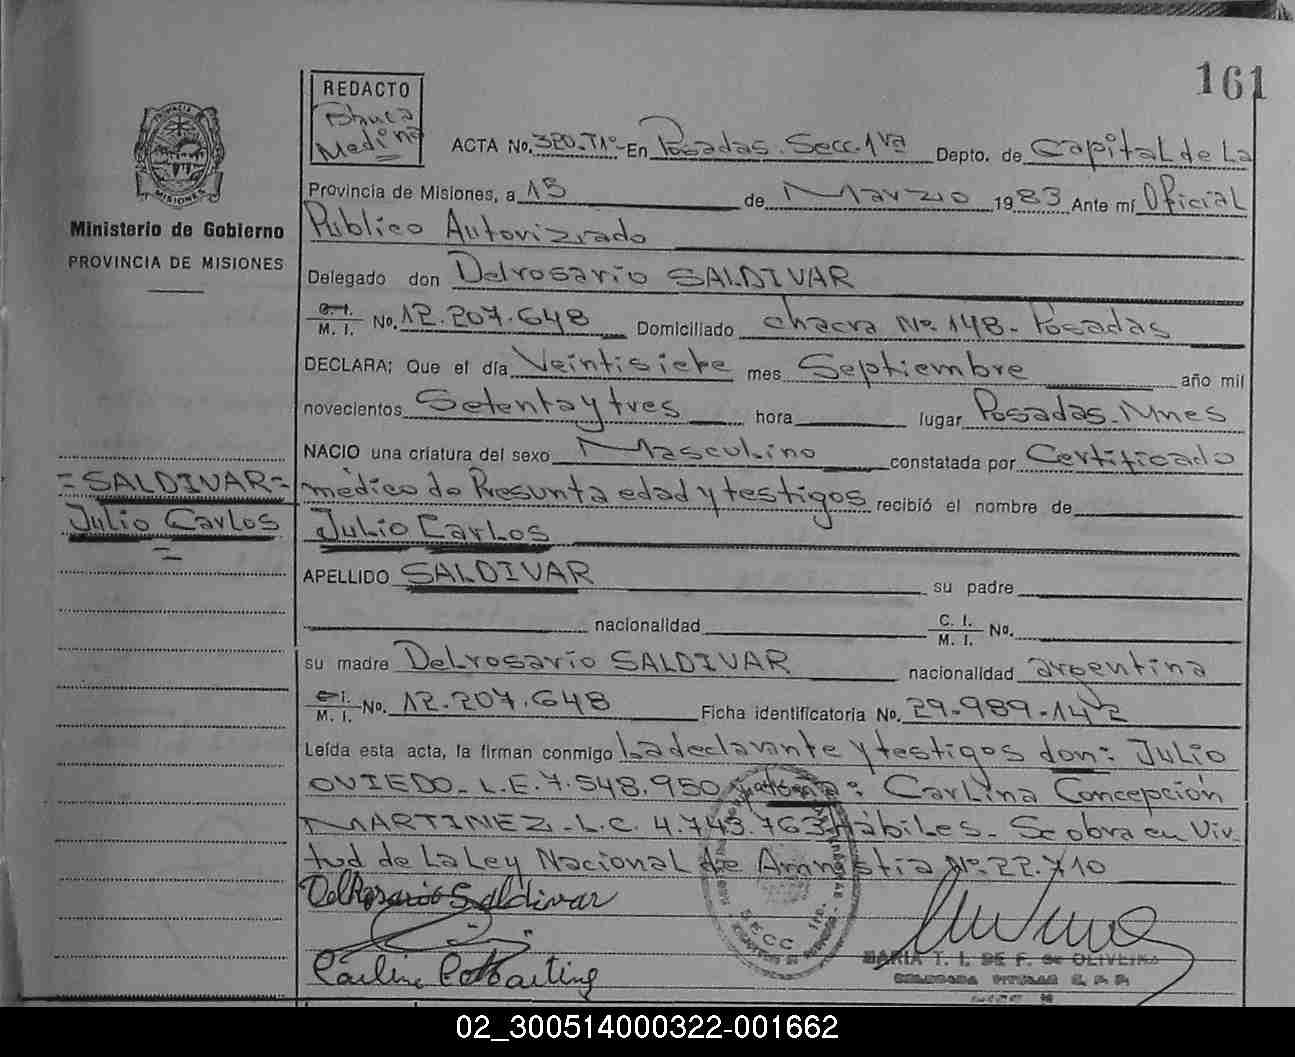 161
REDACTO
Blanca
Medina
ACTA No. 320.T1º- En Posadas. Secc. 1ra Depto. de Capital de La
Provincia de Misiones, a 15 de Marzo 1983 Ante mí Oficial
Público Autorizado
Ministerio de Gobierno
PROVINCIA DE MISIONES
Delegado don Delrosario SALDIVAR
C. I.
M. I. No. 12.207.648 Domiciliado chacra Nº 148- Posadas
DECLARA; Que el día Veintisiete mes Septiembre año mil
novecientos Setenta y tres hora lugar Posadas. Mnes
NACIO una criatura del sexo Masculino constatada por Certificado
= SALDIVAR =
Julio Carlos
=
médico de Presunta edad y testigos recibió el nombre de
Julio Carlos
APELLIDO SALDIVAR su padre
nacionalidad C. I.
M. I. No.
su madre Delrosario SALDIVAR nacionalidad argentina
C. I.
M. I. No. 12.207.648 Ficha identificatoria No. 29.989.142
Leída esta acta, la firman conmigo La declarante y testigos don: Julio
OVIEDO. L.E. 7.548.950 y doña: Carlina Concepción
MARTINEZ. L.C. 4.743.763 Hábiles. Se obra en Vir-
tud de La Ley Nacional de Amnistia Nº 22.710
DelRosario Saldivar
SECC 1ra.
MARIA T. I. DE F. de OLIVEIRA
DELEGADA TITULAR
02_300514000322-001662